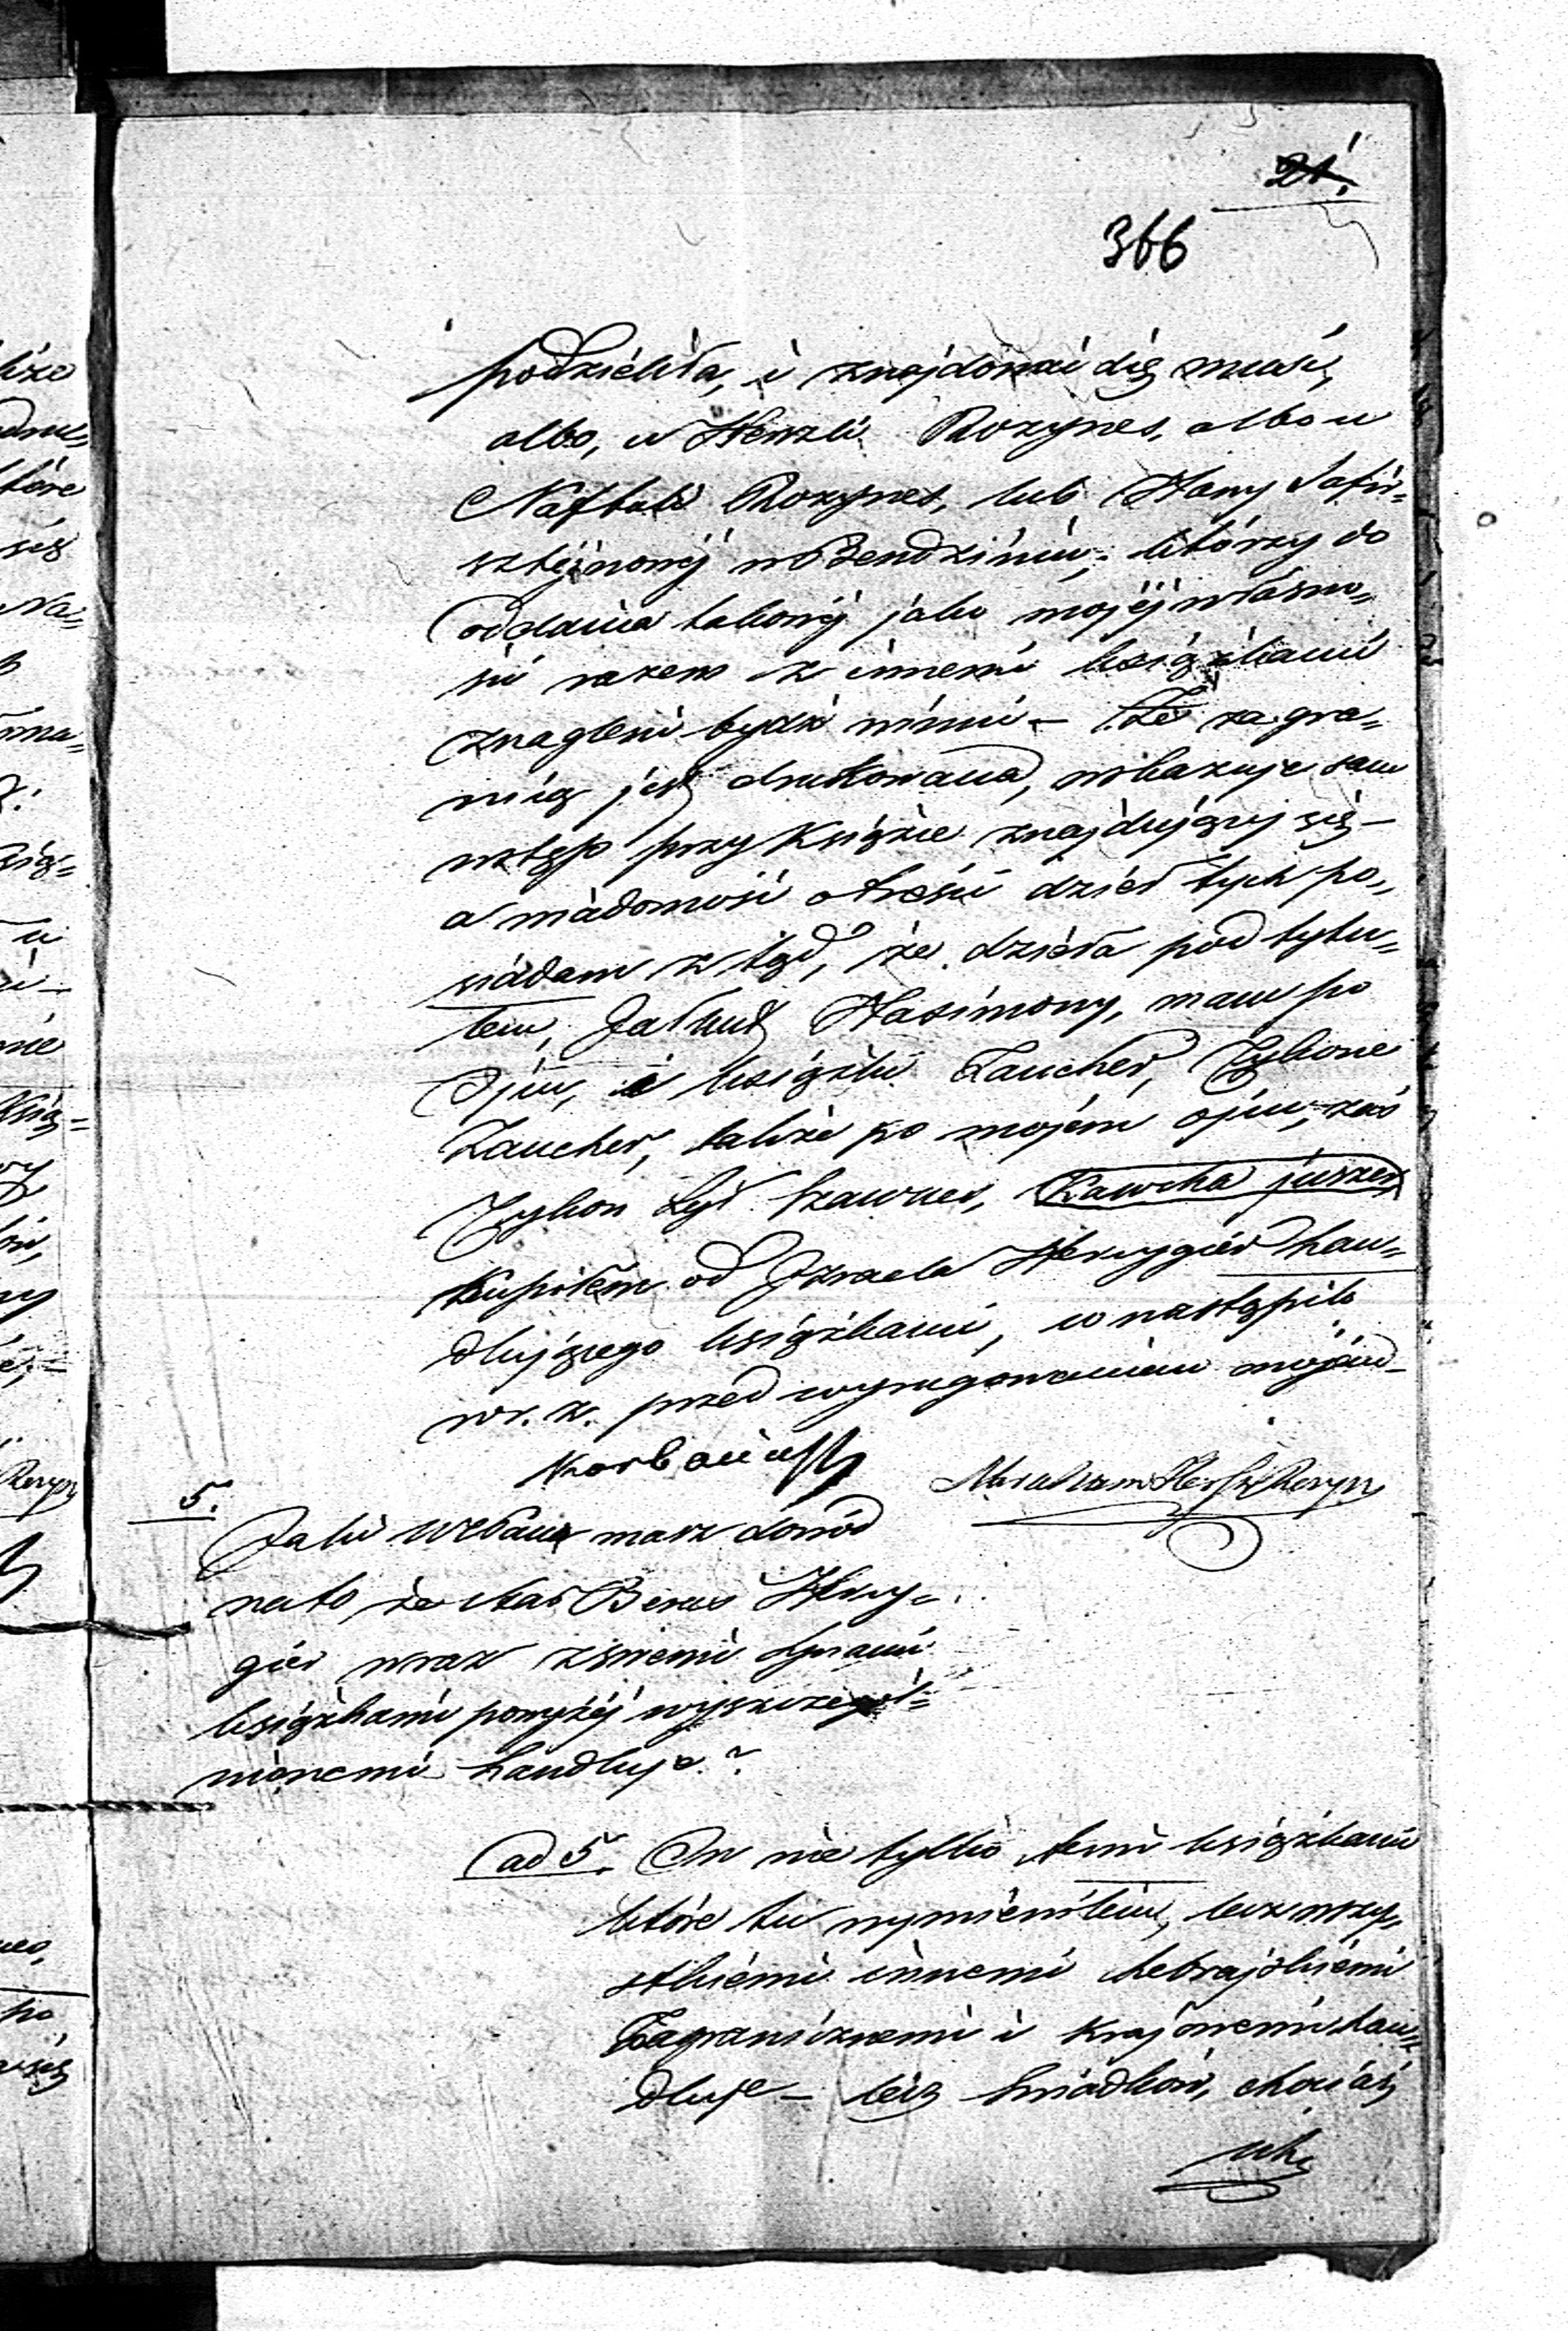 21.
366
podzieliła, i znajdować się musi,
albo, u Henzli Rozynes, albo u
Naftuli Rozynes, lub Hany Safir=
sztejnowéj w Bendzinie, którzy do
oddania takowéj jako mojéj własno„
ści razem z innemi książkami
znagleni bydź winni – Że za gra„
nicą jest drukowana, wskazuje sam
wstęp przy Książce znajdujący się –
a wiadomość o treści dzieł tych po„
siadam z tąd, że dzieła pod tytu„
łem, Jalkut Hasimony, mam po
Ojcu, i książki Zaucher, Tykone
Zaucher, także po mojém ojcu, zaś
Tykon
Kupiłem od Izraela Hercygier han„
dlującego książkami, co nastąpiło
w r. z. przed wyrugowaniem mojém –
Abraham Hersz Rozyn
5.
Jaki W. Pan masz dowód
na to że Berus Hercy„
gier wraz z swemi synami
książkami powyżéj wyszczegól=
nionemi handluje?
ad 5. On nie tylko temi książkami
które tu wymieniłem, lecz wszy„
stkiémi innemi hebrajskiémi
Zagranicznemi i Krajowemi han„
dluje – lecz świadków, chociaż